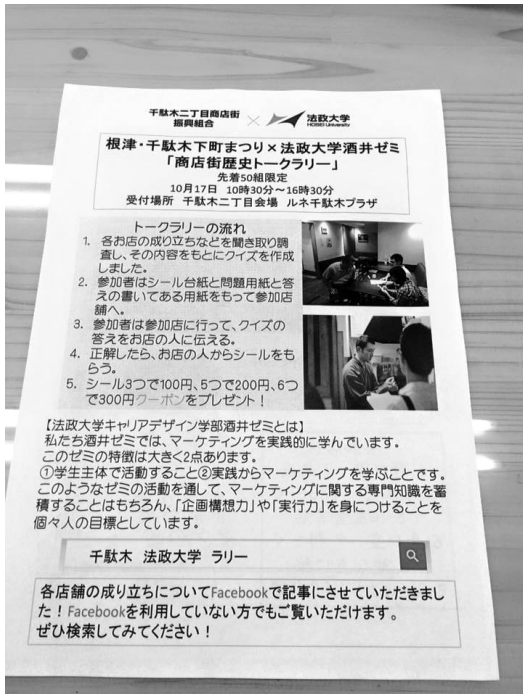 千駄木二丁目商店街
振興組合
×
法政大学
HOSEI University
根津・千駄木下町まつり×法政大学酒井ゼミ
「商店街歴史トークラリー」
先着50組限定
10月17日 10時30分～16時30分
受付場所 千駄木二丁目会場 ルネ千駄木プラザ
トークラリーの流れ
1. 各お店の成り立ちなどを聞き取り調
査し、その内容をもとにクイズを作成
しました。
2. 参加者はシール台紙と問題用紙と答
えの書いてある用紙をもって参加店
舗へ。
3. 参加者は参加店に行って、クイズの
答えをお店の人に伝える。
4. 正解したら、お店の人からシールをも
らう。
5. シール3つで100円、5つで200円、6つ
で300円クーポンをプレゼント！
【法政大学キャリアデザイン学部酒井ゼミとは】
私たち酒井ゼミでは、マーケティングを実践的に学んでいます。
このゼミの特徴は大きく2点あります。
①学生主体で活動すること②実践からマーケティングを学ぶことです。
このようなゼミの活動を通して、マーケティングに関する専門知識を蓄
積することはもちろん、「企画構想力」や「実行力」を身につけることを
個々人の目標としています。
千駄木 法政大学 ラリー
各店舗の成り立ちについてFacebookで記事にさせていただきまし
た！Facebookを利用していない方でもご覧いただけます。
ぜひ検索してみてください！